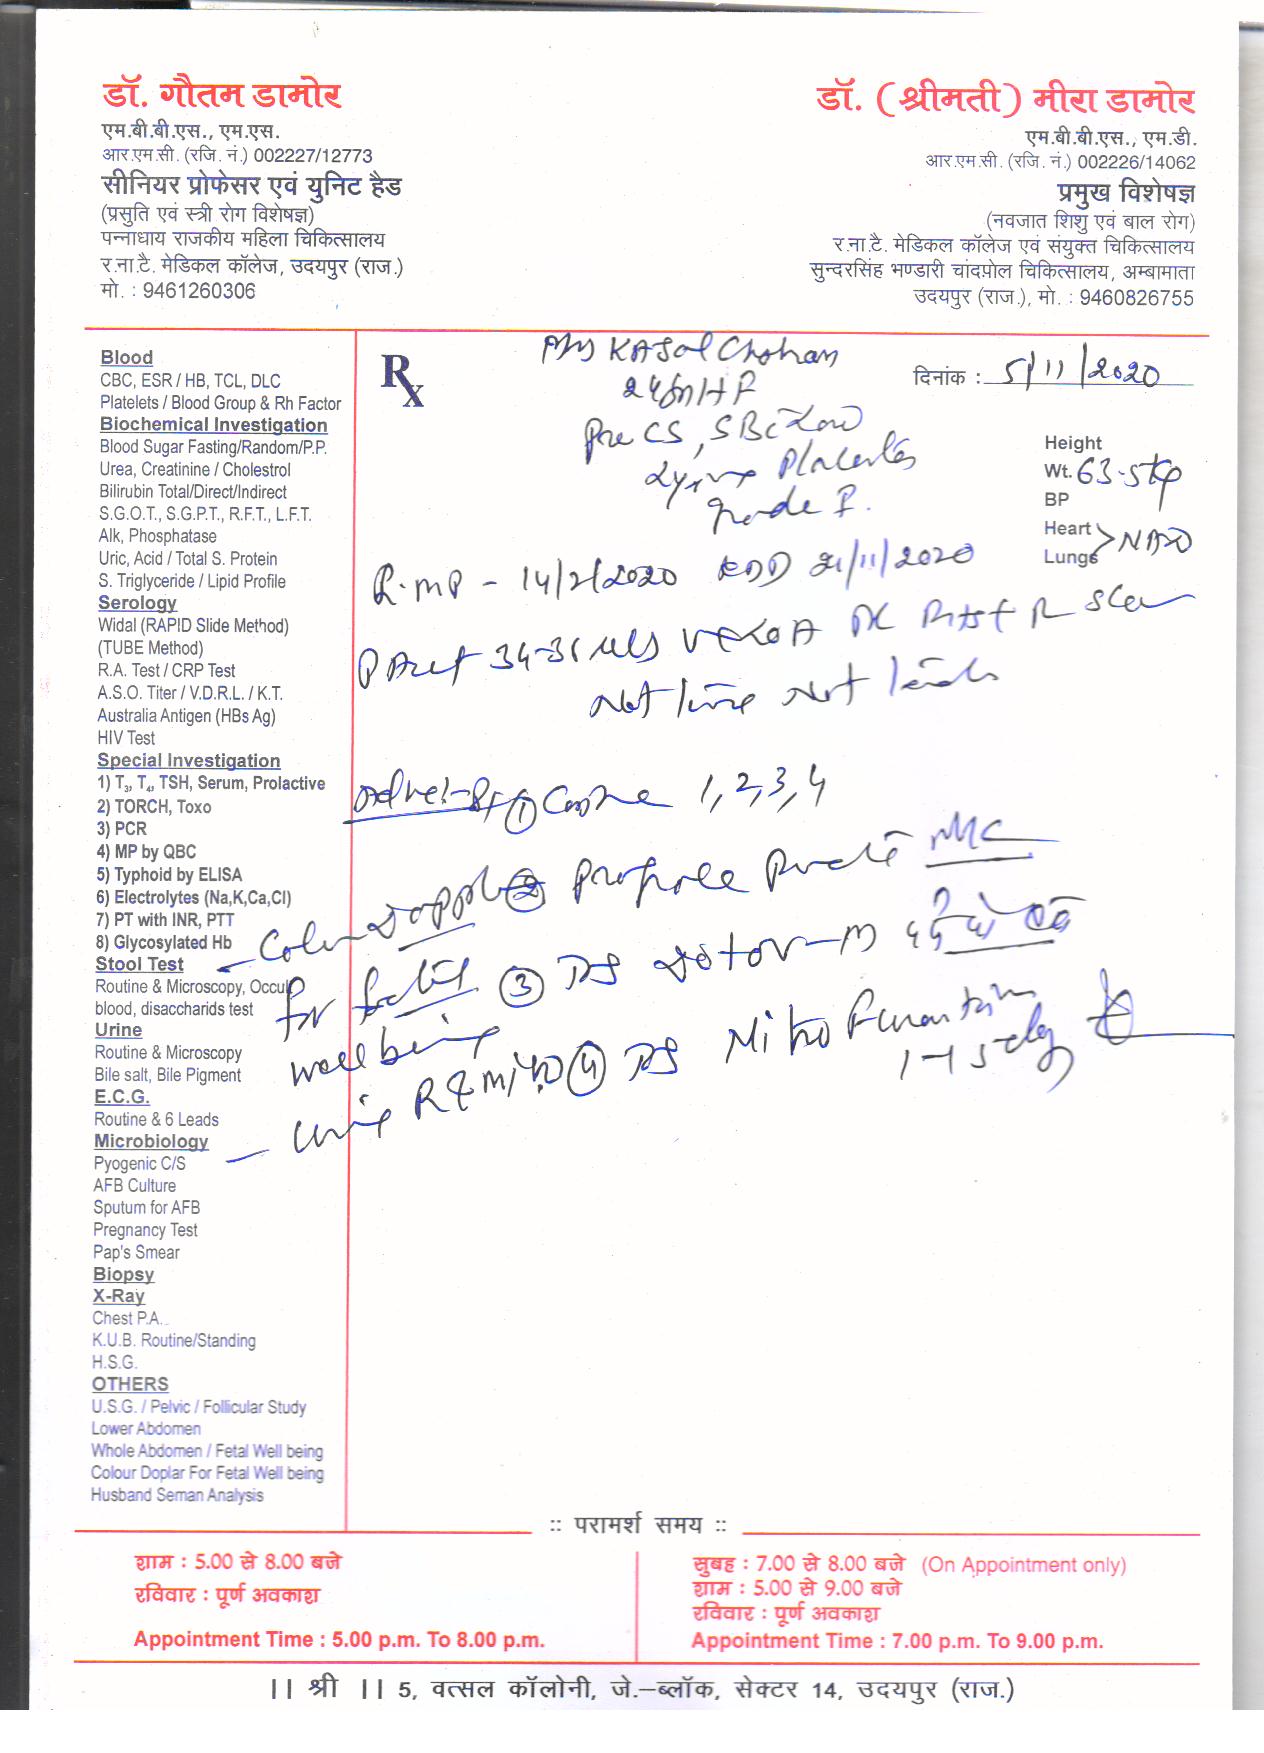 डॉ. गौतम डामोर
एम.बी.बी.एस., एम.एस.
आर.एम.सी. (रजि. नं.) 002227/12773
सीनियर प्रोफेसर एवं युनिट हैड
(प्रसुति एवं स्त्री रोग विशेषज्ञ)
पन्नाधाय राजकीय महिला चिकित्सालय
र.ना.टै. मेडिकल कॉलेज, उदयपुर (राज.)
मो. : 9461260306
डॉ. (श्रीमती) मीरा डामोर
एम.बी.बी.एस., एम.डी.
आर.एम.सी. (रजि. नं.) 002226/14062
प्रमुख विशेषज्ञ
(नवजात शिशु एवं बाल रोग)
र.ना.टै. मेडिकल कॉलेज एवं संयुक्त चिकित्सालय
सुन्दरसिंह भण्डारी चांदपोल चिकित्सालय, अम्बामाता
उदयपुर (राज.), मो. : 9460826755
Blood
CBC, ESR / HB, TCL, DLC
Platelets / Blood Group & Rh Factor
Biochemical Investigation
Blood Sugar Fasting/Random/P.P.
Urea, Creatinine / Cholestrol
Bilirubin Total/Direct/Indirect
S.G.O.T., S.G.P.T., R.F.T., L.F.T.
Alk, Phosphatase
Uric, Acid / Total S. Protein
S. Triglyceride / Lipid Profile
Serology
Widal (RAPID Slide Method)
(TUBE Method)
R.A. Test / CRP Test
A.S.O. Titer / V.D.R.L. / K.T.
Australia Antigen (HBs Ag)
HIV Test
Special Investigation
1) T3, T4, TSH, Serum, Prolactive
2) TORCH, Toxo
3) PCR
4) MP by QBC
5) Typhoid by ELISA
6) Electrolytes (Na,K,Ca,Cl)
7) PT with INR, PTT
8) Glycosylated Hb
Stool Test
Routine & Microscopy, Occult
blood, disaccharids test
Urine
Routine & Microscopy
Bile salt, Bile Pigment
E.C.G.
Routine & 6 Leads
Microbiology
Pyogenic C/S
AFB Culture
Sputum for AFB
Pregnancy Test
Pap's Smear
Biopsy
X-Ray
Chest P.A.
K.U.B. Routine/Standing
H.S.G.
OTHERS
U.S.G. / Pelvic / Follicular Study
Lower Abdomen
Whole Abdomen / Fetal Well being
Colour Doplar For Fetal Well being
Husband Seman Analysis
Rx
KAJal Chohan
दिनांक : 5/11/2020
Pre CS, SB
Placenta
grade
Height
Wt. 63.5
BP
Heart
Lungs > NAD
L.MP - 14/2/2020 EDD 21/11/2020
34-36
Not Not
1, 2, 3, 4
②
for ③
well being ④ Nitro Furantoin
Urine R & M
:: परामर्श समय ::
शाम : 5.00 से 8.00 बजे
रविवार : पूर्ण अवकाश
Appointment Time : 5.00 p.m. To 8.00 p.m.
सुबह : 7.00 से 8.00 बजे (On Appointment only)
शाम : 5.00 से 9.00 बजे
रविवार : पूर्ण अवकाश
Appointment Time : 7.00 p.m. To 9.00 p.m.
|| श्री || 5, वत्सल कॉलोनी, जे.–ब्लॉक, सेक्टर 14, उदयपुर (राज.)